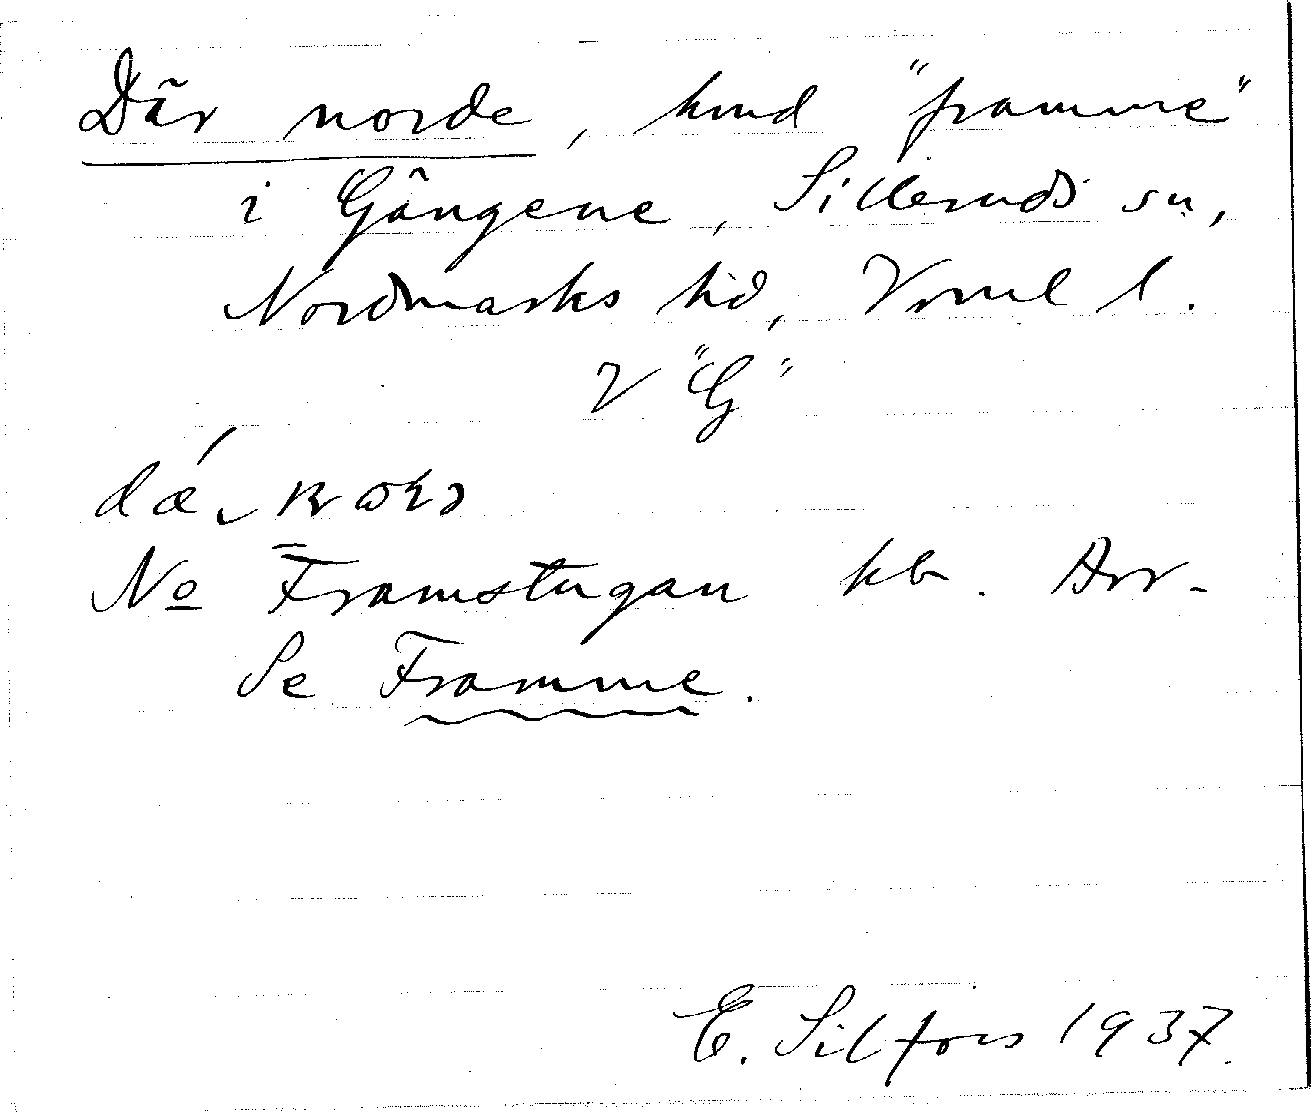 Där norde, hmd "framme"
i Gängene, Silleruds sn,
Nordmarks hd, Vrml l.
V "G"
No Framstugan hb. Arr-
Se Framme.
E. Silfors 1937.